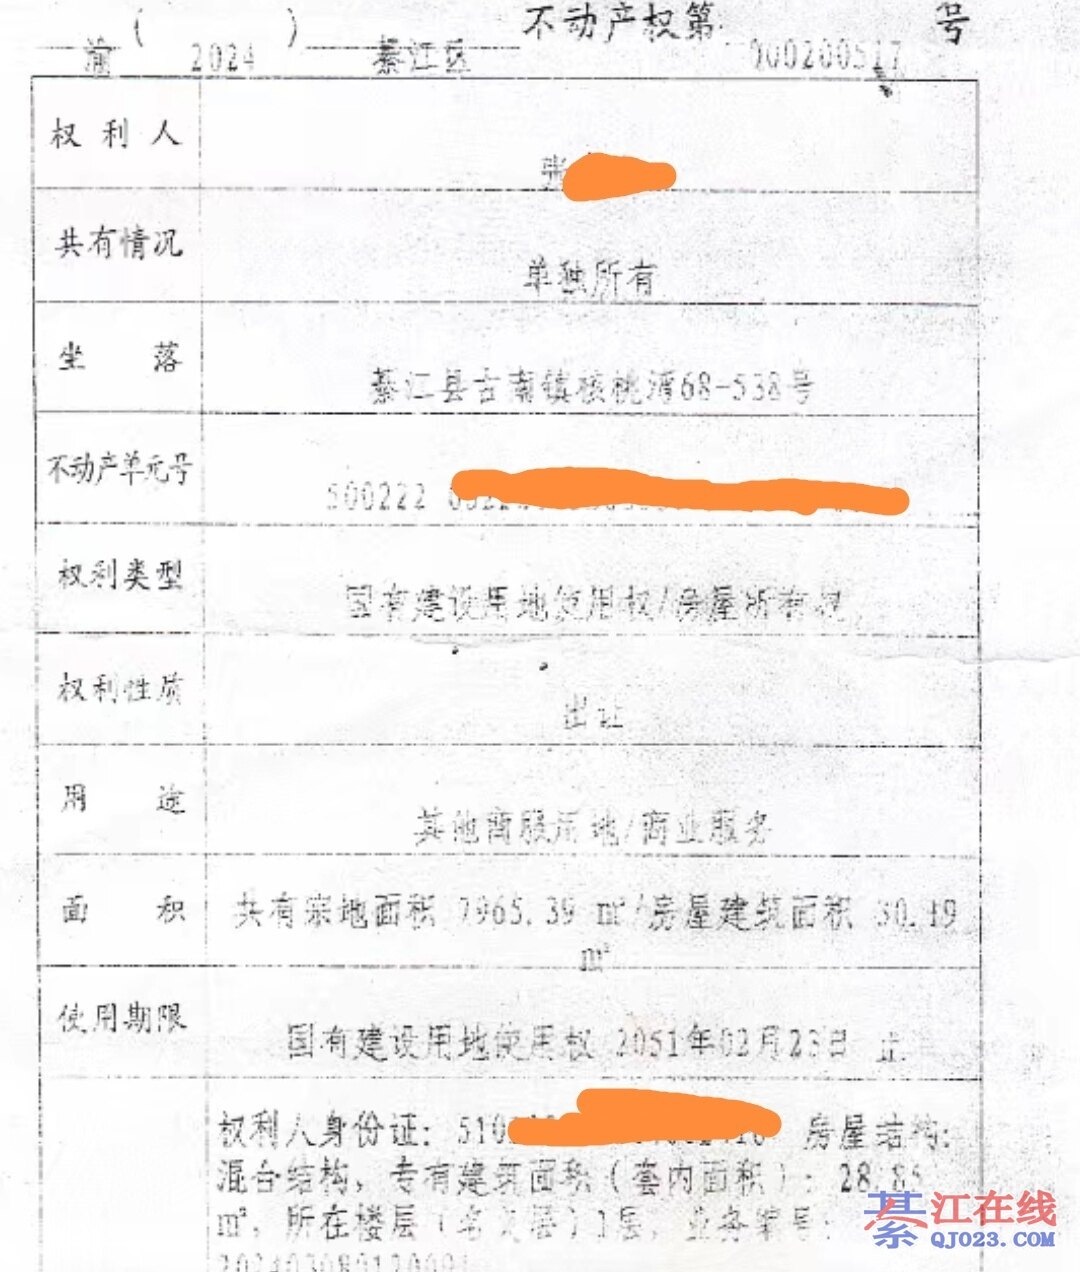 不动产权第 号
渝 ( 2024 ) 綦江区 000200517
权利人
张
共有情况
单独所有
坐落
綦江县古南镇核桃湾68-538号
不动产单元号
500222
权利类型
国有建设用地使用权/房屋所有权
权利性质
出让
用途
其他商服用地/商业服务
面积
共有宗地面积 7965.39 m²/房屋建筑面积 30.49
m²
使用期限
国有建设用地使用权 2051年02月23日 止
权利人身份证: 510 房屋结构:
混合结构, 专有建筑面积(套内面积): 28.85
m², 所在楼层(名义层)1层, 业务编号:
綦江在线
QJ023.COM